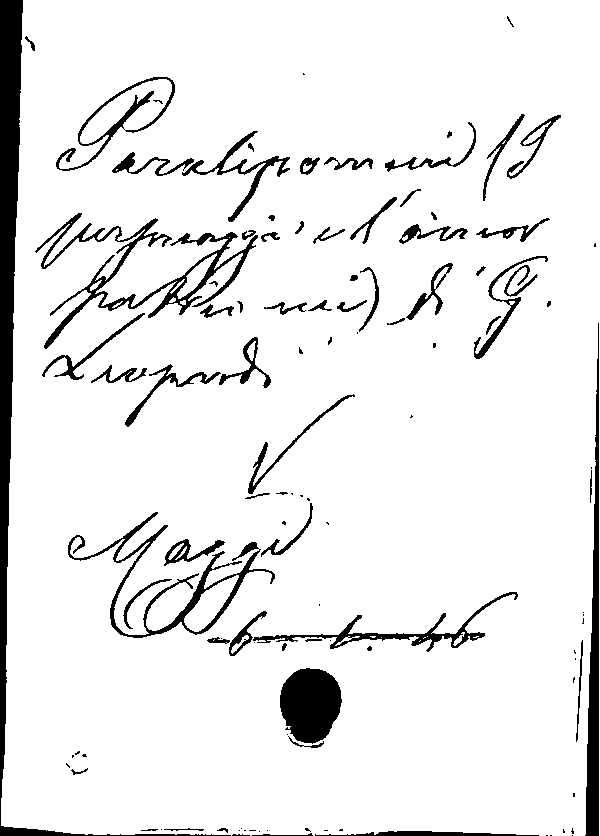 Paralipomeni (I
personaggi e l'amor
patrio nei) di G.
Leopardi
Maggi
6. 1. 46